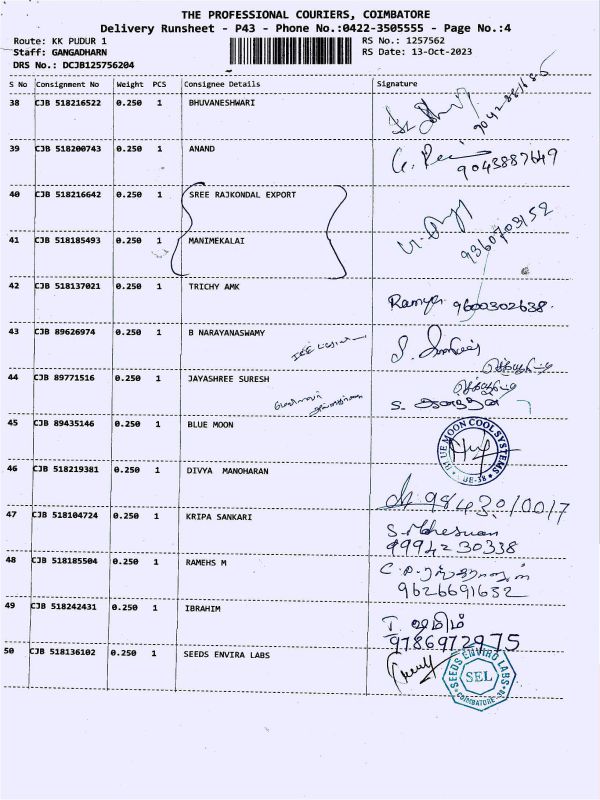 THE PROFESSIONAL COURIERS, COIMBATORE
Delivery Runsheet - P43 - Phone No.:0422-3505555 - Page No.:4
Route: KK PUDUR 1 RS No.: 1257562
Staff: GANGADHARN RS Date: 13-Oct-2023
DRS No.: DCJB125756204
S No Consignment No Weight PCS Consignee Details Signature
38 CJB 518216522 0.250 1 BHUVANESHWARI
39 CJB 518200743 0.250 1 ANAND
9043887649
40 CJB 518216642 0.250 1 SREE RAJKONDAL EXPORT
9360703152
41 CJB 518185493 0.250 1 MANIMEKALAI
42 CJB 518137021 0.250 1 TRICHY AMK
Ramya 9600302638.
43 CJB 89626974 0.250 1 B NARAYANASWAMY
44 CJB 89771516 0.250 1 JAYASHREE SURESH
45 CJB 89435146 0.250 1 BLUE MOON
BLUE MOON COOL SYSTEMS
46 CJB 518219381 0.250 1 DIVYA MANOHARAN
9843010017
47 CJB 518104724 0.250 1 KRIPA SANKARI
9994230338
48 CJB 518185504 0.250 1 RAMEHS M
9626691632
49 CJB 518242431 0.250 1 IBRAHIM
9786972975
50 CJB 518136102 0.250 1 SEEDS ENVIRA LABS
SEEDS ENVIRO LABS
SEL
COIMBATORE